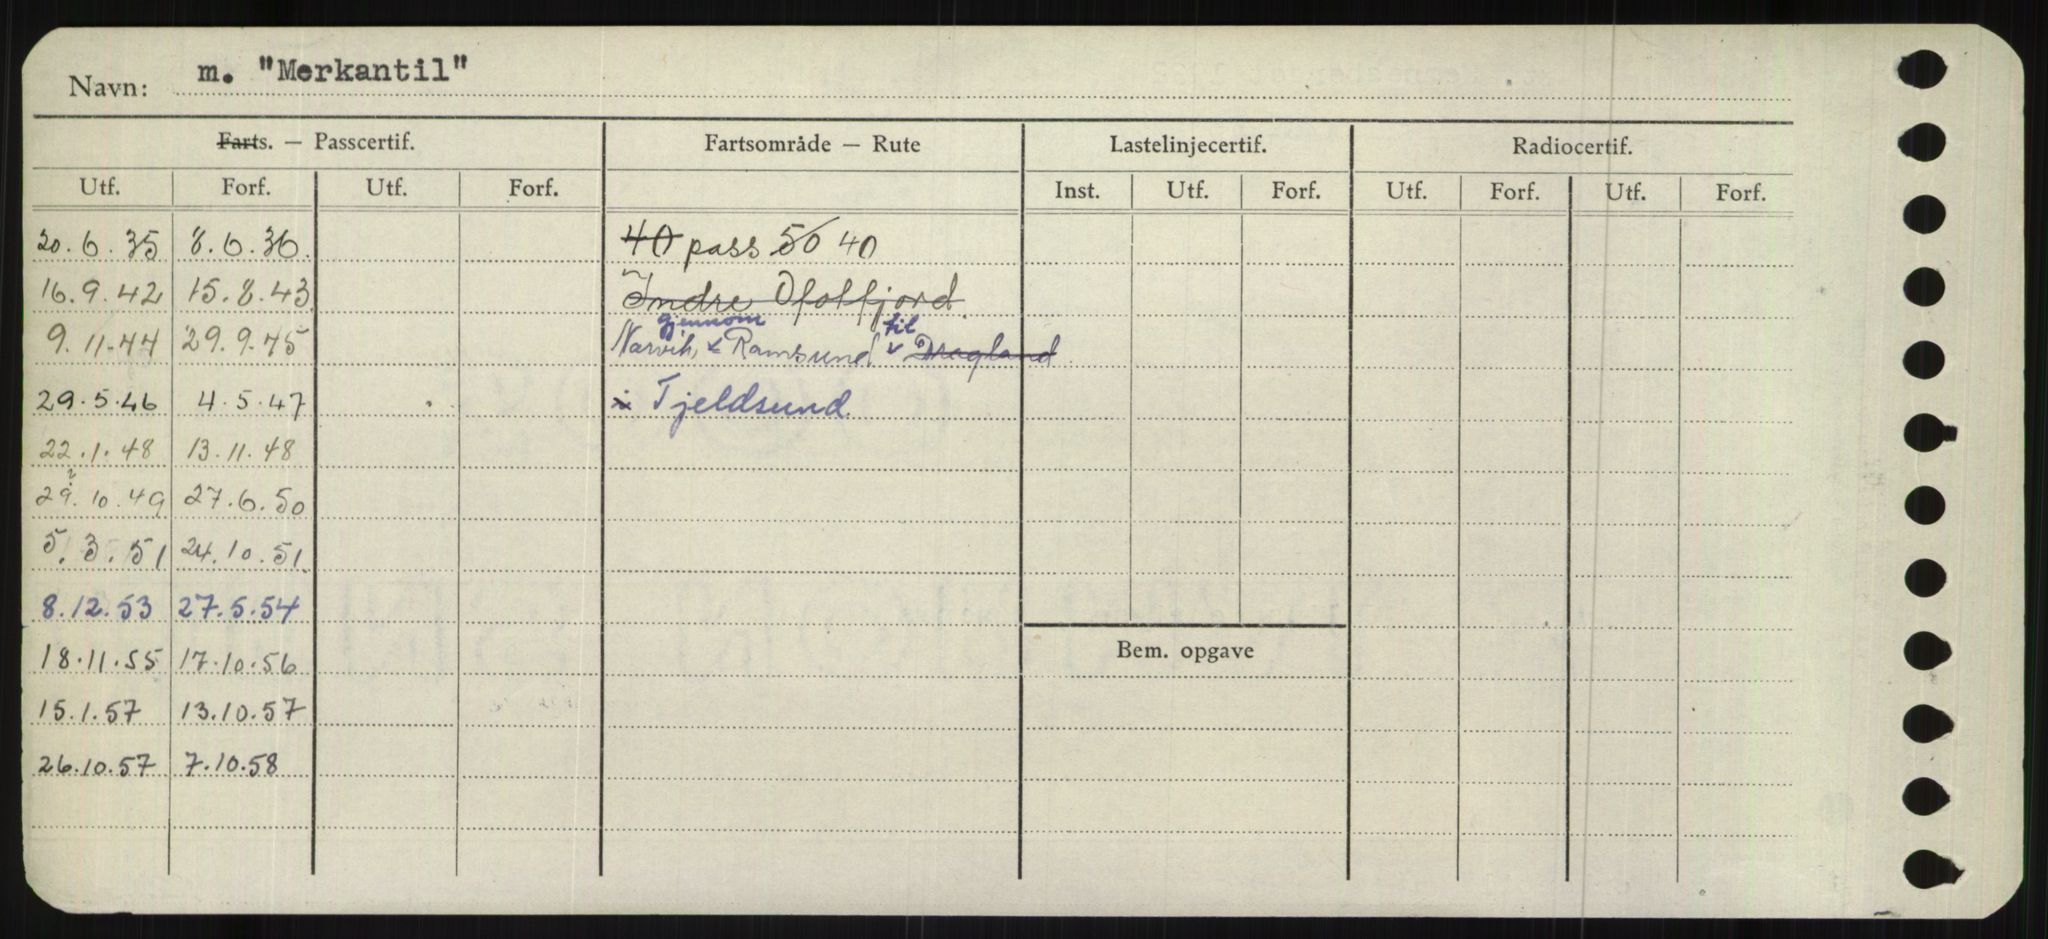 Navn: m. "Merkantil"
Farts. — Passcertif. Fartsområde — Rute Lastelinjecertif. Radiocertif.
Utf. Forf. Utf. Forf. Inst. Utf. Forf. Utf. Forf. Utf. Forf.
20.6.35 8.6.36. 40 pass 50 40
16.9.42 15.8.43 Indre Ofotfjord.
gjennom til
9.11.44 29.9.45 Narvik, Ramsund Dragland
29.5.46 4.5.47 i Tjeldsund
22.1.48 13.11.48
?
29.10.49 27.6.50
5.3.51 24.10.51.
8.12.53 27.5.54
18.11.55 17.10.56 Bem. opgave
15.1.57 13.10.57
26.10.57 7.10.58